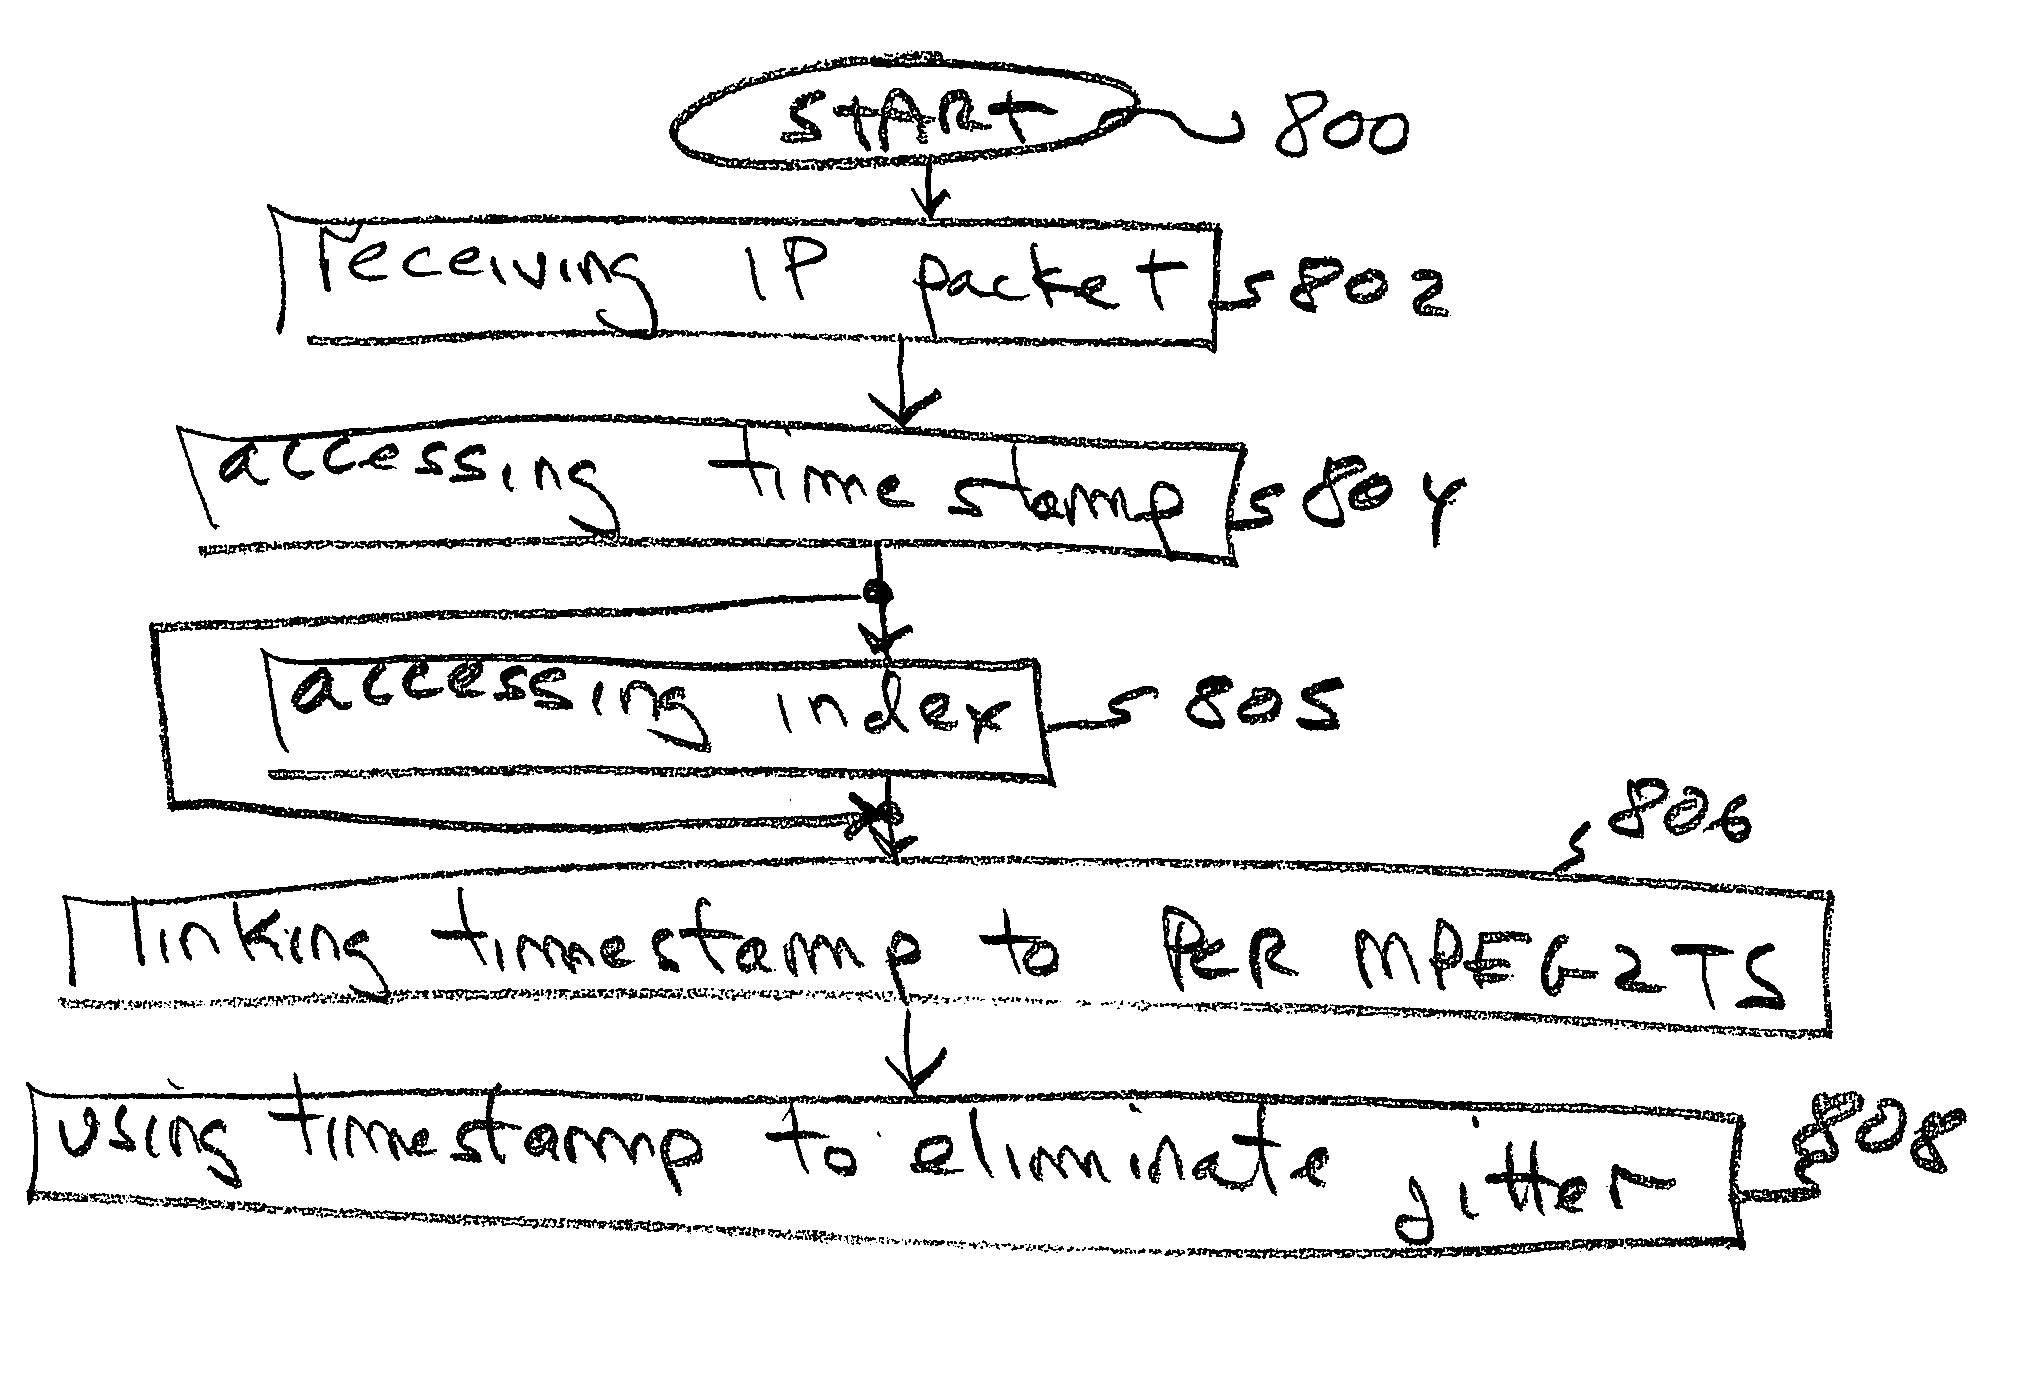 START 800
receiving IP packet 802
accessing timestamp 804
accessing index 805
806
linking timestamp to PER MPEG2TS
using timestamp to eliminate jitter 808